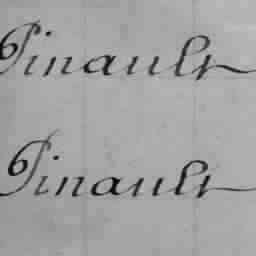 Pinault
Pinault